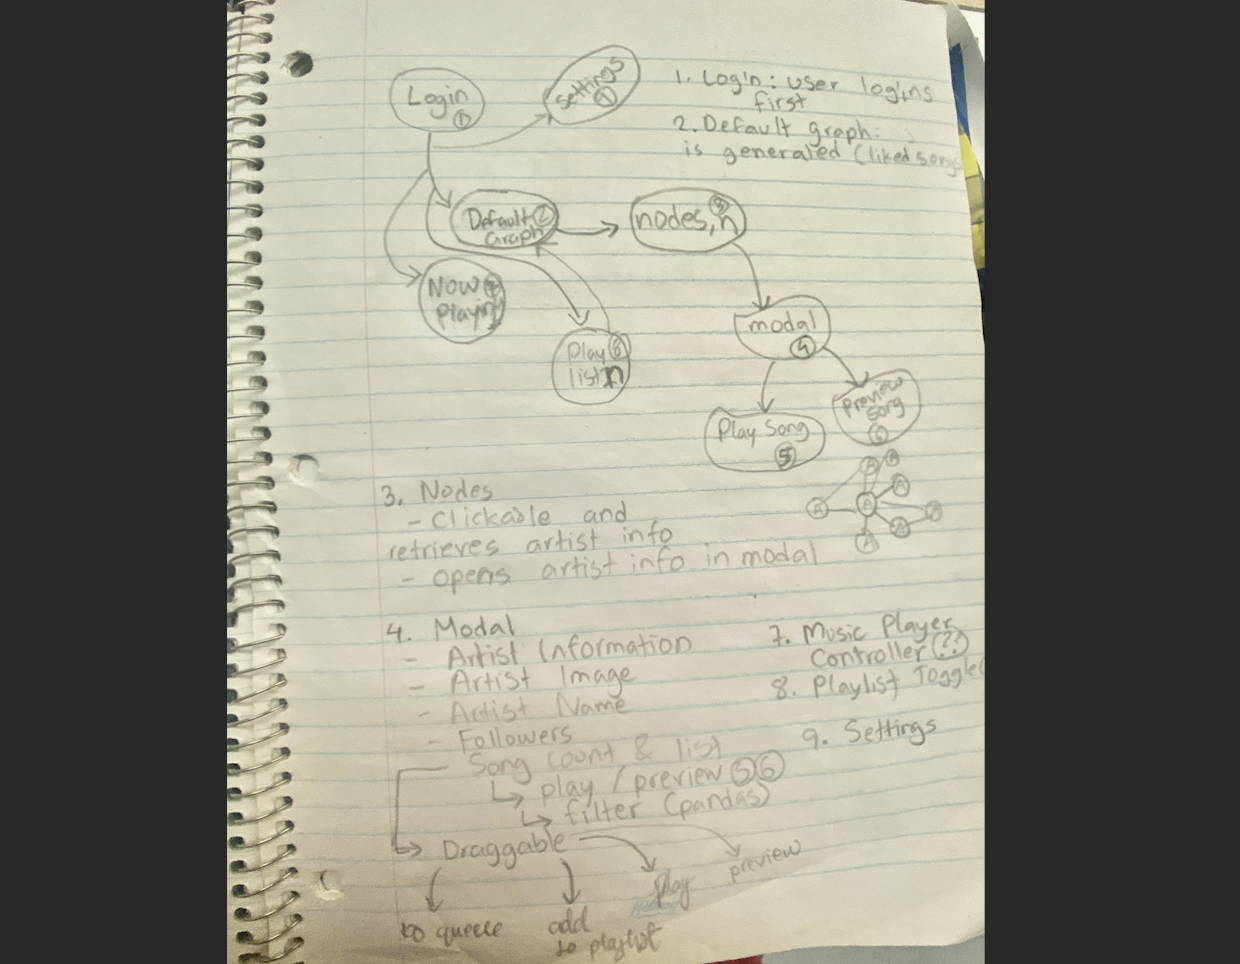 Login
1
Settings
9
1. Login: user logins
first
2. Default graph:
is generated (liked songs
Default 2
Graph
nodes, n
3
Now 7
Playing
Play 8
list n
modal
4
Play Song
5
Preview
Song
6
A A
A
A A A
A
A
3. Nodes
- Clickable and
retrieves artist info
- opens artist info in modal
4. Modal
- Artist Information
- Artist Image
- Artist Name
- Followers
Song count & list
play / preview 5 6
filter (pandas)
Draggable
to queue
add
to playlist
play
preview
7. Music Player
Controller (??)
8. Playlist Toggle
9. Settings